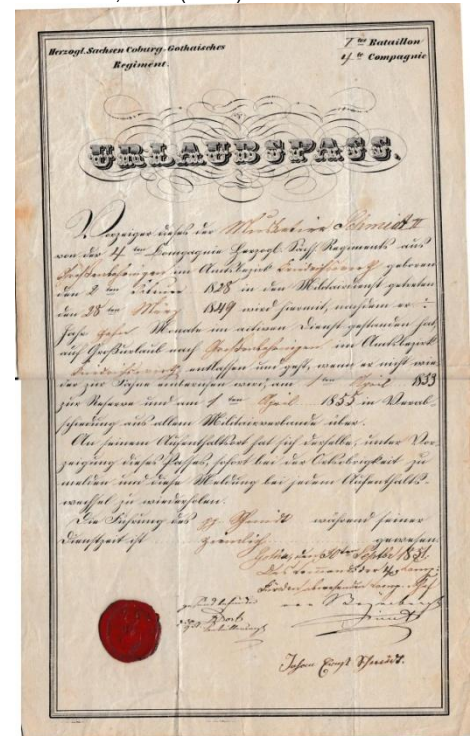 Herzogl. Sachsen Coburg-Gothaisches
Regiment.
Bataillon
4te Compagnie
URLAUBSPASS.
Vorzeiger dieses der Musketier Schmidt II
von der 4ten Compagnie Herzogl. Sächs. Regiments aus
Großenbehringen im Amtsbezirk geboren
den 2ten 1828 in den Militairdienst getreten
den 28ten März 1849 wird hiermit, nachdem er
Jahr zehn Monate im activen Dienst gestanden hat,
auf Großurlaub nach Großenbehringen im Amtsbezirk
entlassen und geht, wenn er nicht wie-
der zur Fahne einberufen wird, am 1ten April 1853
zur Reserve und am 1ten April 1855 in Verab-
schiedung aus allem Militairverbande über.
An seinem Aufenthaltsort hat sich derselbe, unter Vor-
zeigung dieses Passes, sofort bei der Ortsobrigkeit zu
melden und diese Meldung bei jedem Aufenthalts-
wechsel zu wiederholen.
Die Führung des Schmidt während seiner
Dienstzeit ist gewesen.
Gotha, den 30ten Septbr 1851.
Johann Ernst Schmidt.